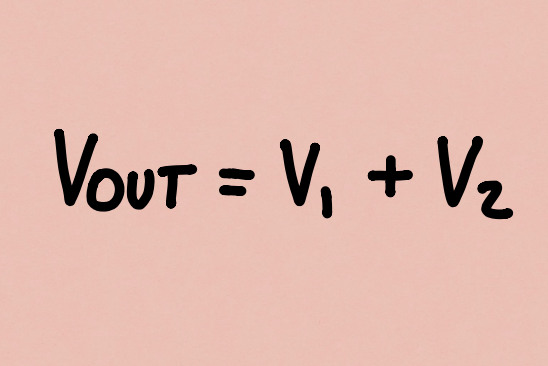 VOUT = V₁ + V₂